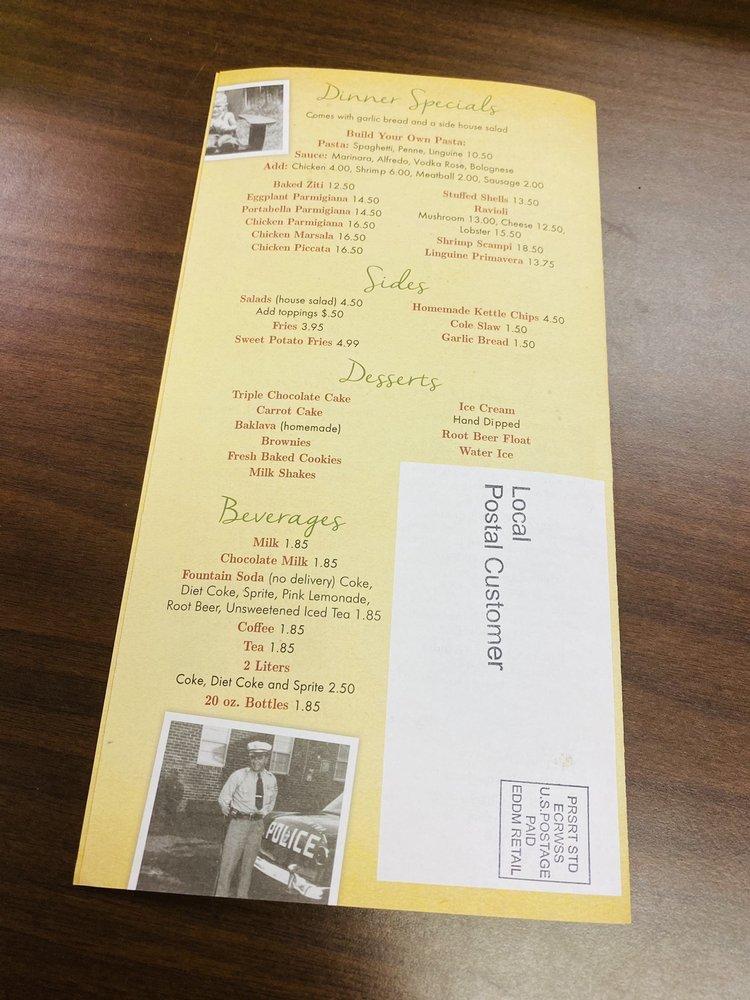 Dinner Specials
Comes with garlic bread and a side house salad
Build Your Own Pasta:
Pasta: Spaghetti, Penne, Linguine 10.50
Sauce: Marinara, Alfredo, Vodka Rose, Bolognese
Add: Chicken 4.00, Shrimp 6.00, Meatball 2.00, Sausage 2.00
Baked Ziti 12.50
Eggplant Parmigiana 14.50
Portabella Parmigiana 14.50
Chicken Parmigiana 16.50
Chicken Marsala 16.50
Chicken Piccata 16.50
Stuffed Shells 13.50
Ravioli
Mushroom 13.00, Cheese 12.50,
Lobster 15.50
Shrimp Scampi 18.50
Linguine Primavera 13.75
Sides
Salads (house salad) 4.50
Add toppings $.50
Fries 3.95
Sweet Potato Fries 4.99
Homemade Kettle Chips 4.50
Cole Slaw 1.50
Garlic Bread 1.50
Desserts
Triple Chocolate Cake
Carrot Cake
Baklava (homemade)
Brownies
Fresh Baked Cookies
Milk Shakes
Ice Cream
Hand Dipped
Root Beer Float
Water Ice
Beverages
Milk 1.85
Chocolate Milk 1.85
Fountain Soda (no delivery) Coke,
Diet Coke, Sprite, Pink Lemonade,
Root Beer, Unsweetened Iced Tea 1.85
Coffee 1.85
Tea 1.85
2 Liters
Coke, Diet Coke and Sprite 2.50
20 oz. Bottles 1.85
POLICE
Local
Postal Customer
PRSRT STD
ECRWSS
U.S.POSTAGE
PAID
EDDM RETAIL